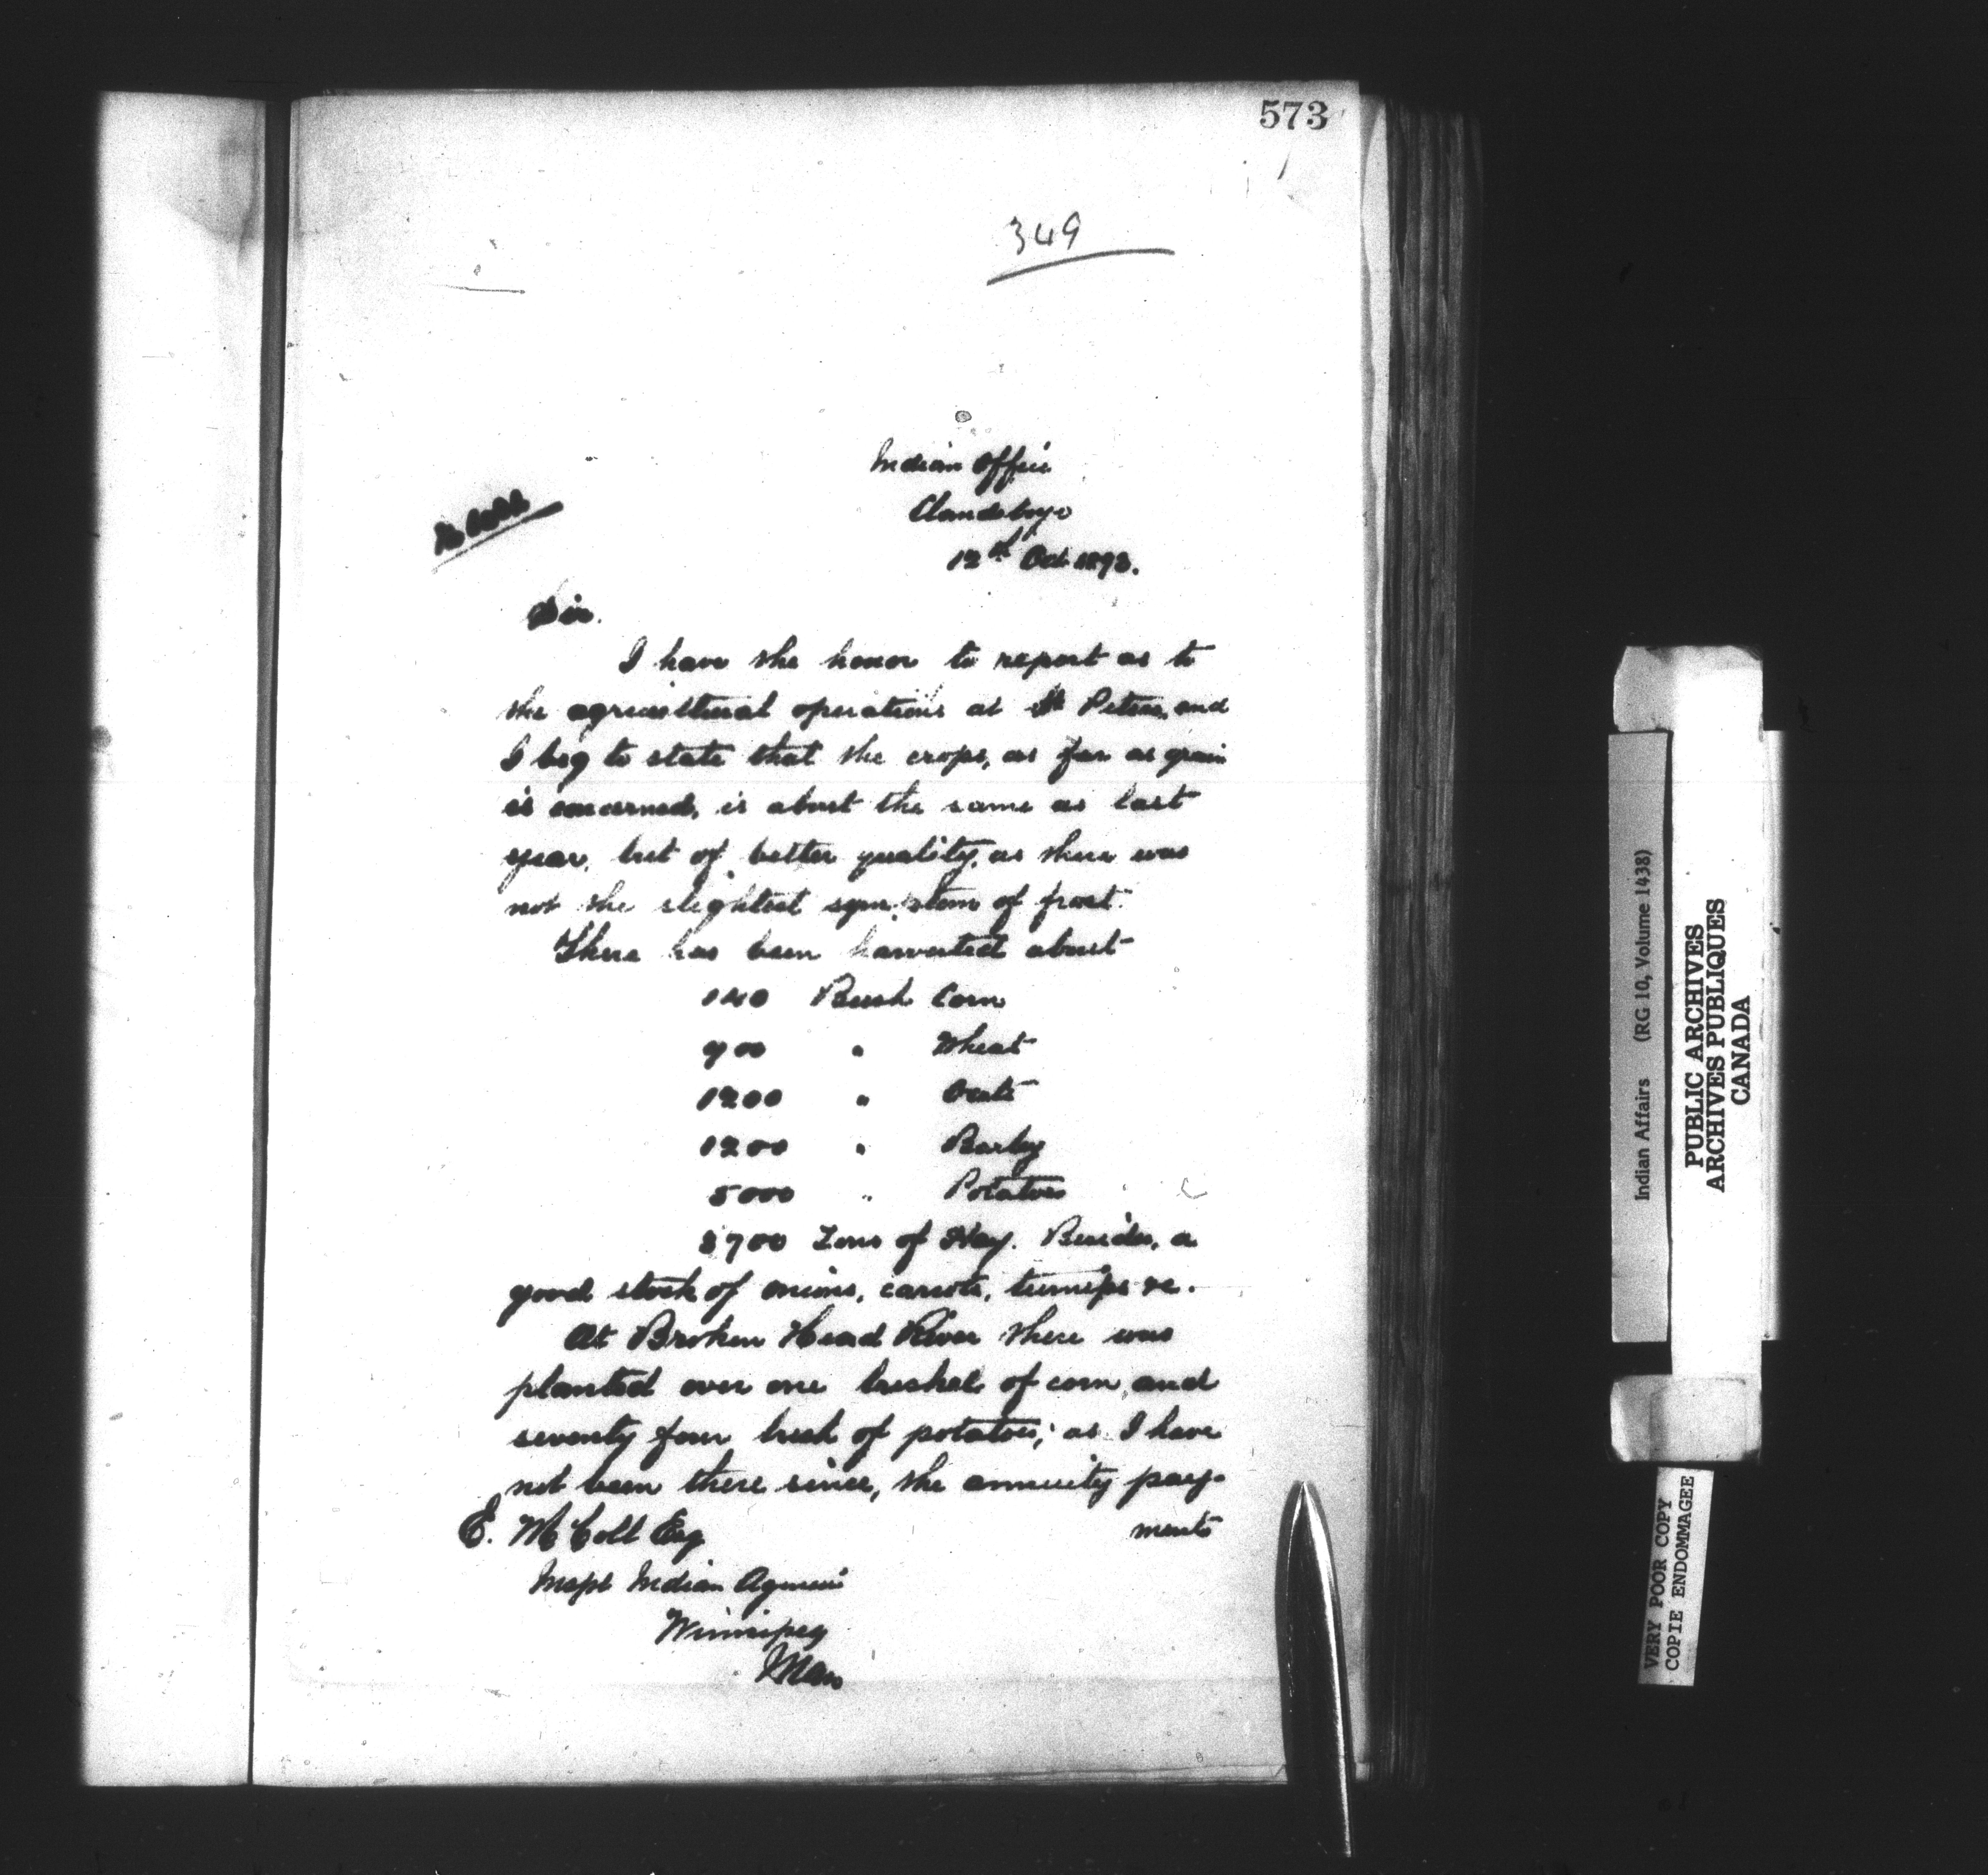 573
349
Indian Office
Clandeboye
12th Oct 1893.
McColl
Sir.
I have the honor to report as to
the agricultural operations at St Peters, and
I beg to state that the crops, as far as grain
is concerned, is about the same as last
year, but of better quality, as there was
not the slightest symptom of frost.
There has been harvested about
140 Bush Corn
900 " Wheat
1200 " Oats
1200 " Barley
5000 " Potatoes
3700 Tons of Hay. Besides, a
good stock of onions, carrots, turnips &c.
At Broken Head River there was
planted over one bushel of corn, and
seventy four bush of potatoes; as I have
not been there since, the annuity pay-
ments
E. McColl Esq
Inspt Indian Agencies
Winnipeg
Man
Indian Affairs (RG 10, Volume 1438)
PUBLIC ARCHIVES
ARCHIVES PUBLIQUES
CANADA
VERY POOR COPY
COPIE ENDOMMAGEE